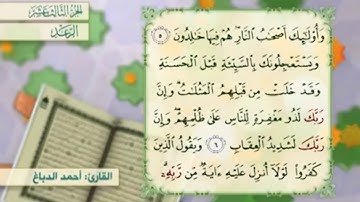 الجزء الثالث عشر
الرعد
وَأُوْلَٰٓئِكَ أَصْحَٰبُ ٱلنَّارِ هُمْ فِيهَا خَٰلِدُونَ ٥
وَيَسْتَعْجِلُونَكَ بِٱلسَّيِّئَةِ قَبْلَ ٱلْحَسَنَةِ
وَقَدْ خَلَتْ مِن قَبْلِهِمُ ٱلْمَثُلَٰتُ وَإِنَّ
رَبَّكَ لَذُو مَغْفِرَةٍ لِّلنَّاسِ عَلَىٰ ظُلْمِهِمْ وَإِنَّ
رَبَّكَ لَشَدِيدُ ٱلْعِقَابِ ٦ وَيَقُولُ ٱلَّذِينَ
كَفَرُوا۟ لَوْلَآ أُنزِلَ عَلَيْهِ ءَايَةٌ مِّن رَّبِّهِۦٓ
القارئ: أحمد الدباغ